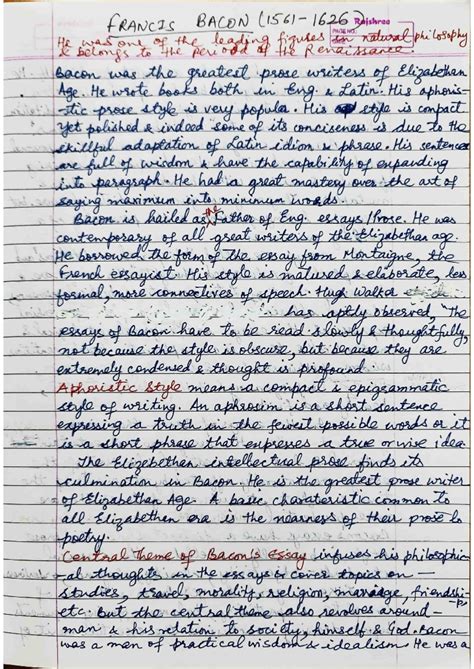 FRANCIS BACON (1561-1626) Rajshree
PAGE NO.
He was one of the leading figures in natural philosophy
& belongs to the period of the Renaissance.
Bacon was the greatest prose writers of Elizabethan
Age. He wrote books both in Eng. & Latin. His aphoris-
-tic prose style is very popular. His style is compact
yet polished & indeed some of its conciseness is due to the
skillful adaptation of Latin idiom & phrase. His sentences
are full of wisdom & have the capability of expanding
into paragraph. He had a great mastery over the art of
saying maximum into minimum words.
Bacon is hailed as the Father of Eng. essays/Prose. He was
contemporary of all great writers of the Elizabethan age.
He borrowed the form of the essay from Montaigne, the
French essayist. His style is matured & elaborate, less
formal, more connectives of speech. Hugh Walker
has aptly observed, "The
essays of Bacon have to be read slowly & thoughtfully,
not because the style is obscure, but because they are
extremely condensed & thought is profound.
Aphoristic Style means a compact & epigrammatic
style of writing. An aphrosim is a short sentence
expressing a truth in the fewest possible words or it
is a short phrase that expresses a true or wise idea.
The Elizebethen intellectual prose finds its
culmination in Bacon. He is the greatest prose writer
of Elizabethan Age. A basic charateristic common to
all Elizabethen era is the nearness of their prose to
poetry.
Central Theme of Bacon's Essay infuses his philosophic
-al thoughts in the essays & cover topics on
studies, travel, morality, religion, marriage, friendshi-
etc. But the central theme also revolves around -p
man & his relation to society, himself & God. Bacon
was a man of practical wisdom & idealism. He was a